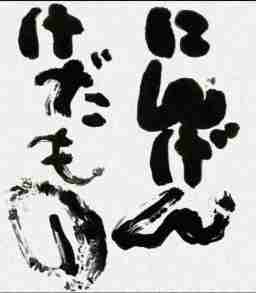 にんげん
けだもの